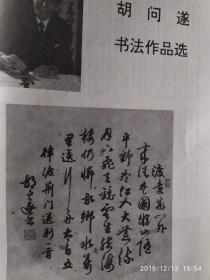 胡问遂
书法作品选
渡远荆门外
来从楚国游山随
平野尽江入大荒流
月下飞天镜云生结海
楼仍怜故乡水万
里送行舟太白五
律渡荆门送别一首
2019/12/13 15:54